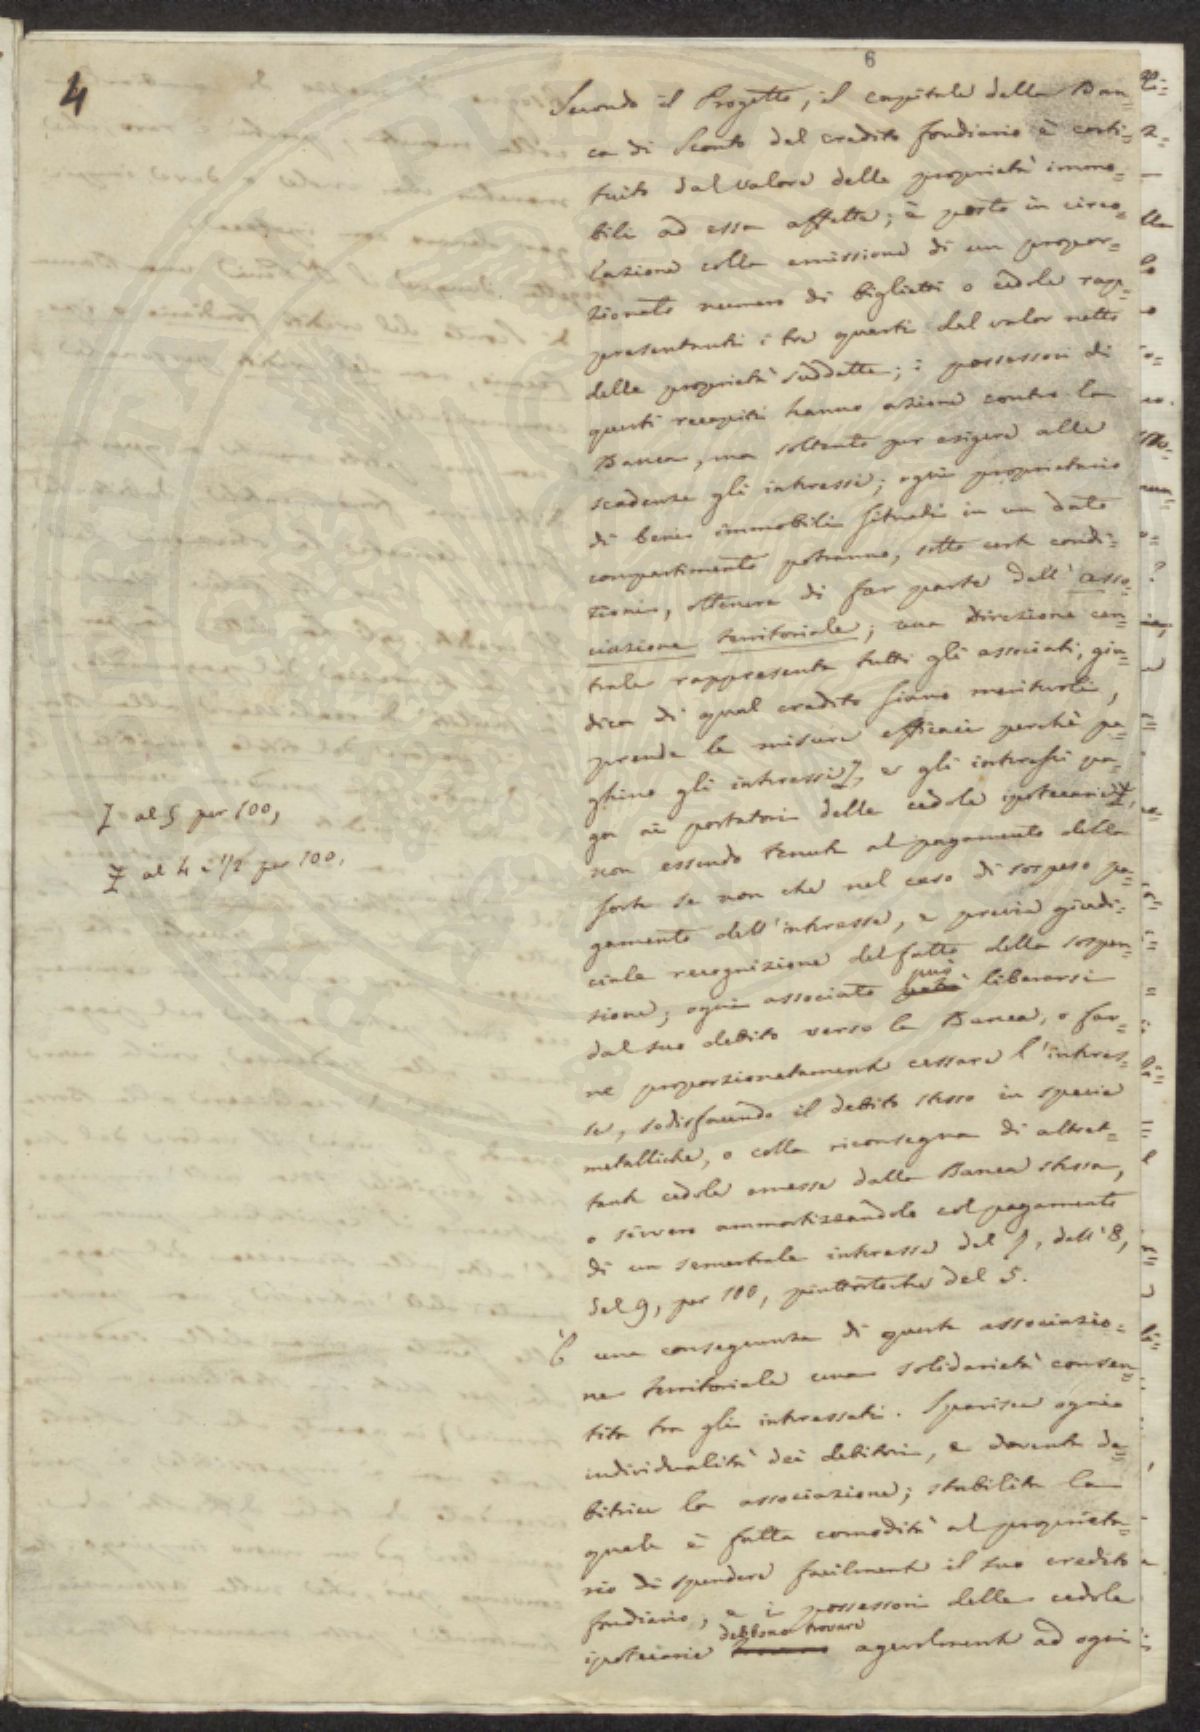 4
6
Secondo il Progetto, il capitale della Ban=
ca di Sconto del credito fondiario è costi=
tuito dal valore delle proprietà immo=
bili ad essa affette; è posto in circo=
lazione colla emissione di un propor=
zionato numero di biglietti o cedole rap=
presentanti i tre quarti del valor netto
delle proprietà suddette; i possessori di
questi recapiti hanno azione contro la
Banca, ma soltanto per esigere alle
scadenze gli interessi; ogni proprietario
di beni immobili situati in un dato
compartimento potranno, sotto certe condi=
zioni, ottenere di far parte dell' asso=
ciazione territoriale; una direzione cen=
trale rappresenta tutti gli associati, giu=
dica di qual credito siano meritevoli,
prende le misure efficaci perchè pa=
ghino gli interessi, e gli interessi pa=
ga ai portatori delle cedole ipotecarie,
non essendo tenuta al pagamento della
sorte se non che nel caso di sospeso pa=
gamento dell'interesse, e previa giudi=
ciale recognizione del fatto della sospen=
sione; ogni associato può liberarsi
dal suo debito verso la Banca, o far=
ne proporzionatamente cessare l'interes=
se, sodisfacendo il debito stesso in specie
metalliche, o colla riconsegna di altret=
tante cedole emesse dalla Banca stessa,
o sivvero ammortizzandolo col pagamento
di un semestrale interesse del 7, dell' 8,
del 9, per 100, piuttostochè del 5.
È una conseguenza di questa associazio=
ne territoriale una solidarietà consen=
tita tra gli interessati. Sparisce ogni
individualità dei debitori, e diventa de=
bitrice la associazione; stabilita la
quale è fatta comodità al proprieta=
rio di spendere facilmente il suo credito
fondiario; e i possessori delle cedole
ipotecarie debbono trovare agevolmente ad ogni
al 5 per 100,
al 4 e 1/2 per 100,